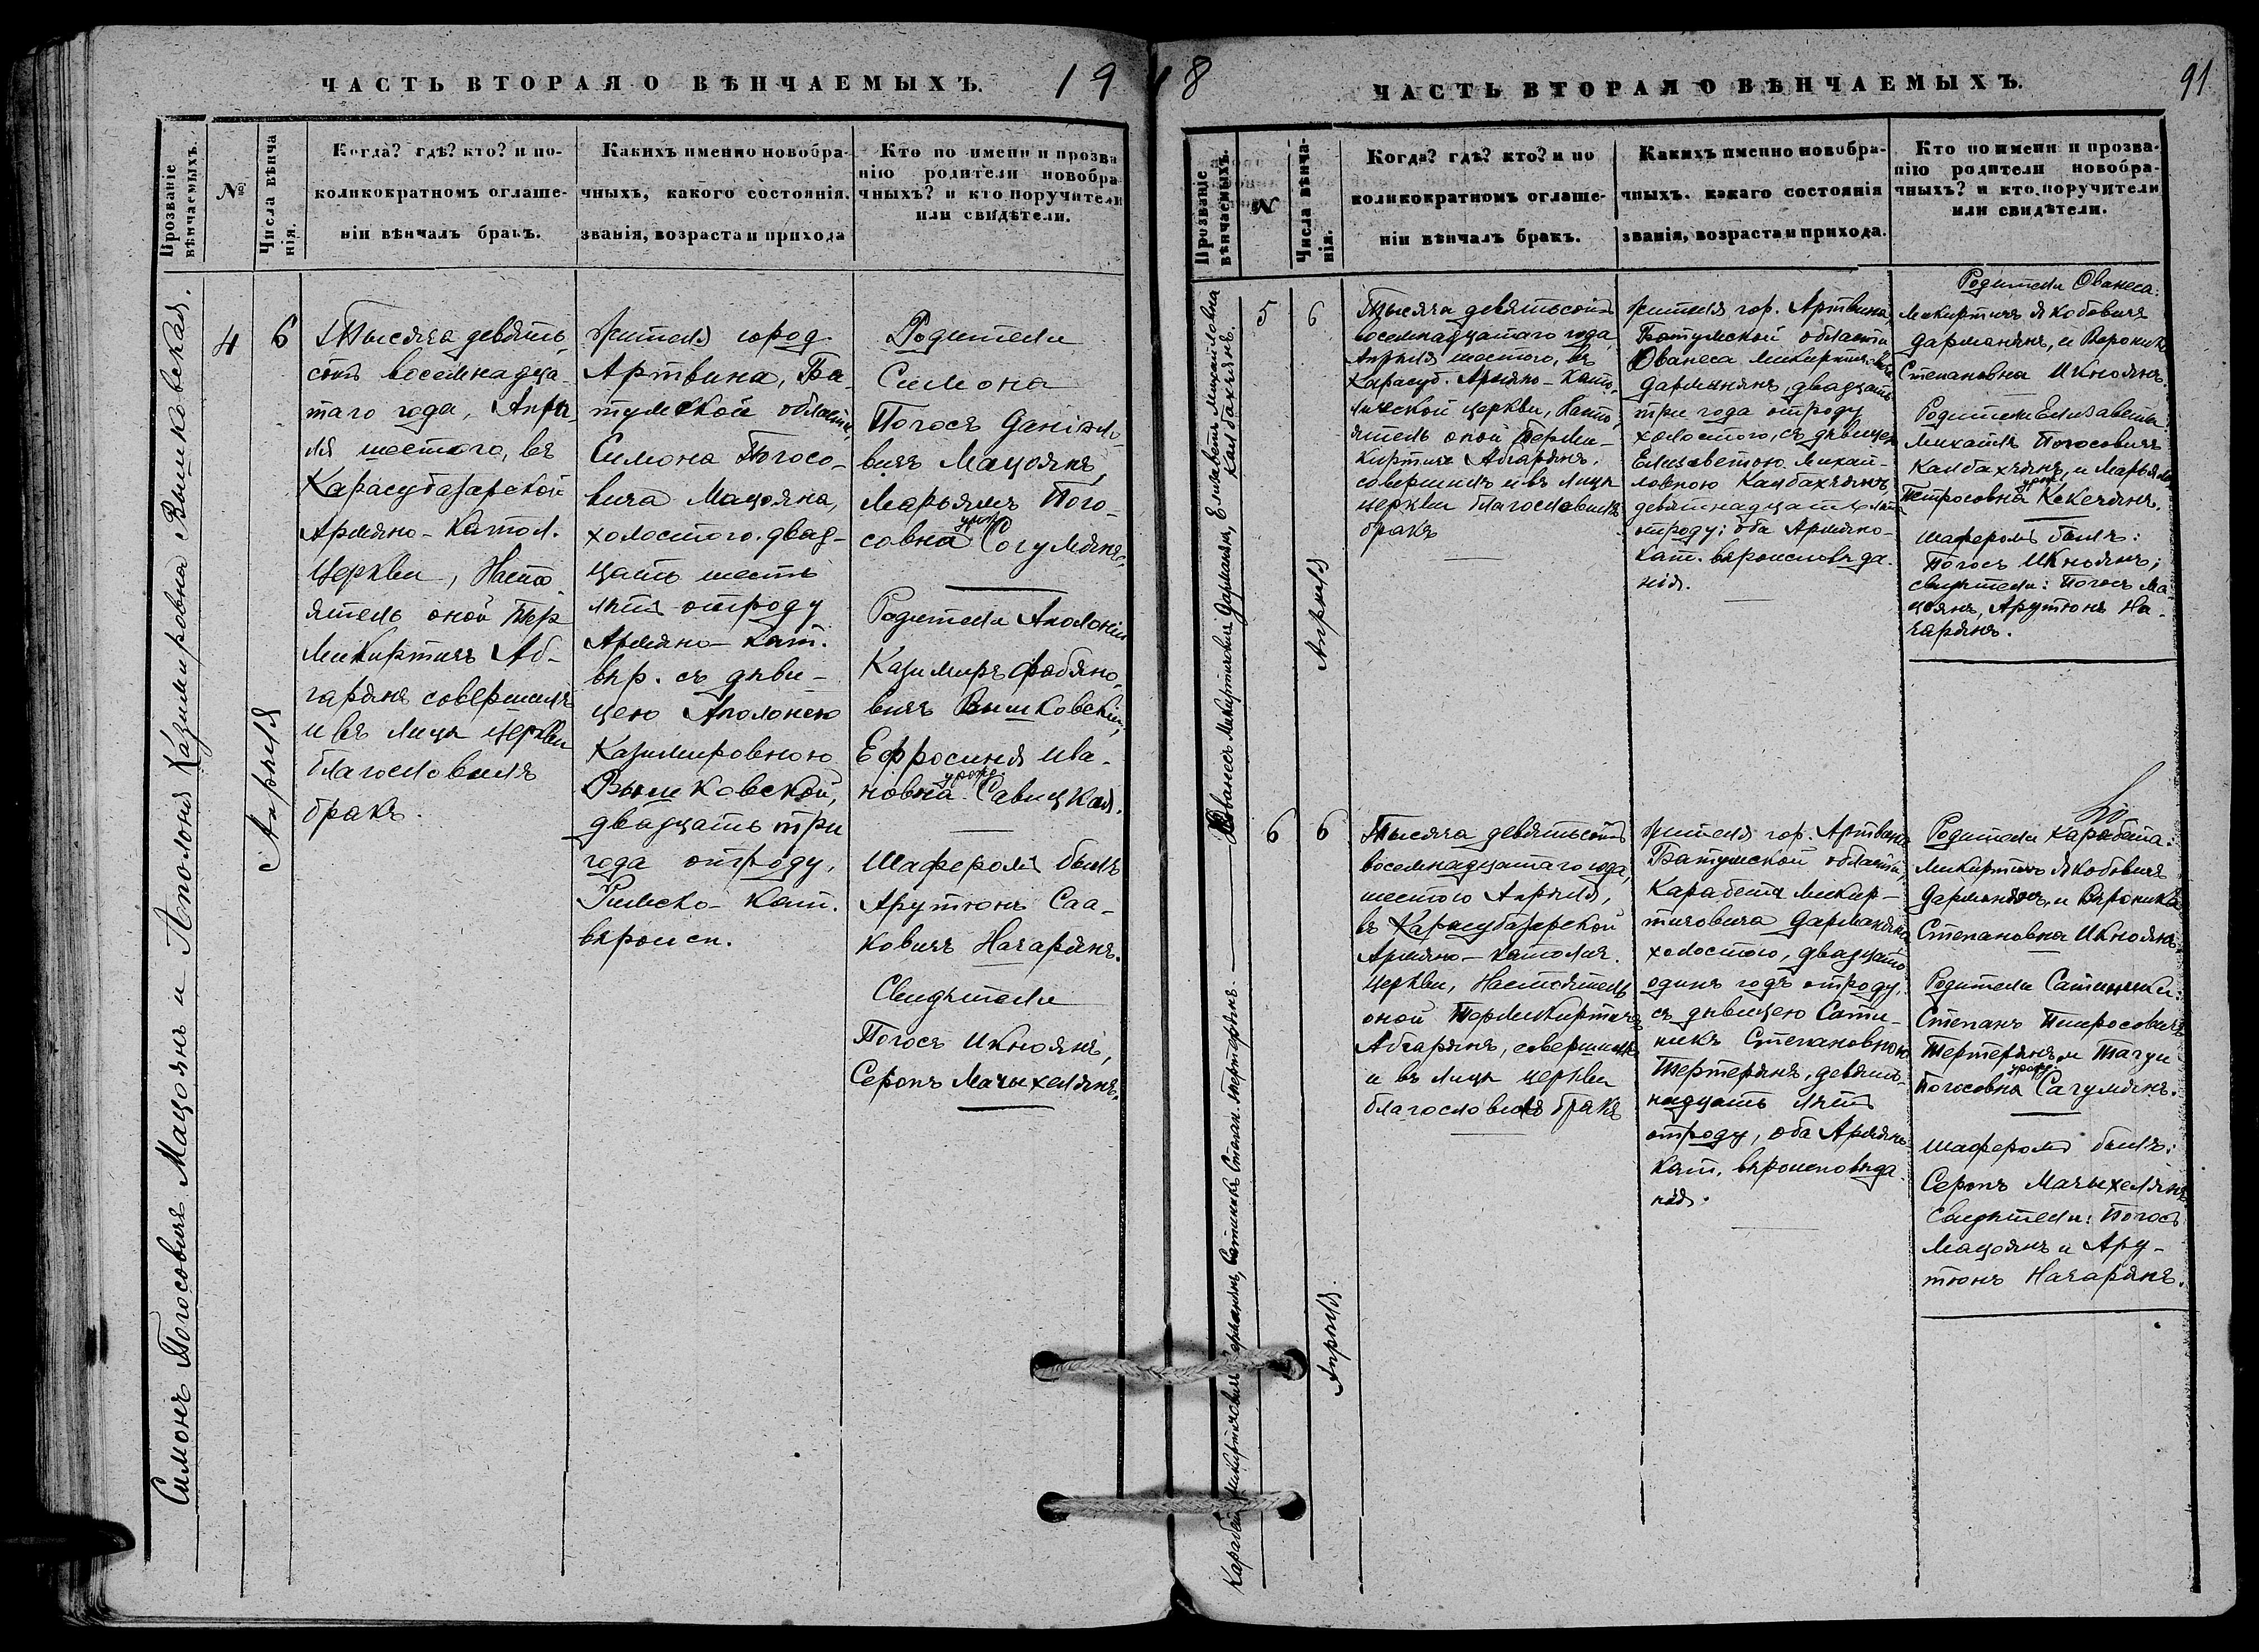 ЧАСТЬ ВТОРАЯ О ВѢНЧАЕМЫХЪ.
19
Прозваніе
вѣнчаемыхъ.
№
Числа вѣнча
нія.
Когда? гдѣ? кто? и по-
коликократномъ оглаше-
ніи вѣнчалъ бракъ.
Какихъ именно новобра-
чныхъ, какого состоянія.
званія, возраста и прихода
Кто по имени и прозва
нію родители новобра
чныхъ? и кто поручители
или свидѣтели.
Симонъ Погосовичъ Мацоянъ и Аполонія Казимировна Вышковская.
4
6
Апрѣля
Тысяча девять
сотъ восемнадца-
таго года, Апрѣ
ля шестого, въ
Карасубазарской
Армяно-Катол.
Церкви, Насто
ятель оной Тер
Микиртичъ Аб-
гарянъ совершилъ
и въ лицѣ церкви
благословилъ
бракъ.
Жителя город.
Артвина, Ба-
тумской области,
Симона Погосо-
вича Мацояна,
холостого. двад-
цать шесть
лѣтъ отроду
Армяно-кат.
вѣр. съ дѣви-
цею Аполонею
Казимировною
Вышковской,
двадцать три
года отроду,
Римско-Кат.
вѣроисп.
Родители
Симона
Погосъ Даніэло-
вичъ Мацоянъ,
Марьямъ Пого-
урож.
совна Согумянъ.
Родители Аполоніи
Казимиръ Фабяно-
вичъ Вышковскій,
Ефросинія Ива-
урожд.
новна Савицкая.
Шаферомъ былъ
Арутюнъ Саа-
ковичъ Начарянъ.
Свидѣтели
Погосъ Икноянъ,
Серопъ Мачыхелянъ.
8
ЧАСТЬ ВТОРАЯ О ВѢНЧАЕМЫХЪ.
91
Прозваніе
вѣнчаемыхъ.
№
Числа вѣнча-
нія.
Когда? гдѣ? кто? и по
коликократномъ оглаше-
ніи вѣнчалъ бракъ.
Какихъ именно новобра-
чныхъ. какаго состоянія
званія, возраста и прихода.
Кто по имени и прозва-
нію родители новобра-
чныхъ? и кто поручители
или свидѣтели.
Ованесъ Микиртичевичъ Дарманянъ, Елизаветъ Михайловна
Калбахчянъ.
5
6
Апрѣля
Тысяча девятьсотъ
восемнадцатаго года,
Апрѣля шестого, въ
Карасуб. Армяно-Като-
лической церкви, Насто-
ятель оной Тер Ми-
киртичъ Абгарянъ.
совершилъ и въ лицѣ
церкви благословилъ
бракъ
Жителя гор. Артвина,
Батумской области
Ованеса Микиртичевича
Дарманянъ, двадцать
три года отроду
холостого, съ дѣвицею
Елизаветою Михай-
ловною Калбахчянъ,
девятнадцать лѣтъ
отроду; оба Армяно-
Кат. вѣроисповѣда-
нія.
Родители Ованеса:
Микиртичъ Якобовичъ
Дарманянъ, и Вероника
Степановна Икноянъ.
Родители Елизаветы
Михаилъ Погосовичъ
Калбахчянъ, и Марьямъ
урож.
Петросовна Кекечянъ.
Шаферомъ былъ:
Погосъ Икноянъ;
свидѣтели: Погосъ Ма-
цоянъ, Арутюнъ На-
чарянъ.
Карабетъ Микиртичевичъ Дарманянъ, Сатиникъ Степан. Тертерянъ.
6
6
Апрѣля.
Тысяча девятьсотъ
восемнадцатаго года,
шестого Апрѣля,
въ Карасубазарской
Армяно-католич.
церкви, Настоятель
оной Тер Микиртичъ
Абгарянъ, совершилъ
и въ лицѣ церкви
благословилъ бракъ
Жителя гор. Артвина
Батумской области,
Карабета Микир-
тичовича Дарманяна
холостого, двадцать
одинъ годъ отроду,
съ дѣвицею Сати-
никъ Степановною
Тертерянъ, девят-
надцать лѣтъ
отроду, оба Армяно-
кат. вѣроисповѣда
нія.
Родители Карабета:
Микиртичъ Якобовичъ
Дарманянъ, и Вероника
Степановна Икноянъ.
Родители Сатиники:
Степанъ Петросовичъ
Тертерянъ, и Тагуи
урожд.
Погосовна Сагумянъ.
Шаферомъ былъ:
Серопъ Мачыхелянъ
Свидѣтели: Погосъ
Мацоянъ и Ару-
тюнъ Начарянъ.